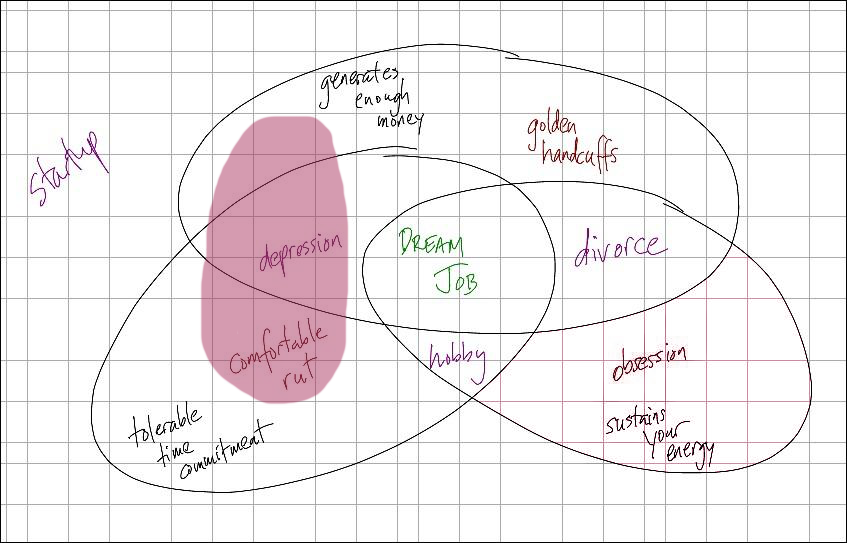 generates
enough
money
golden
handcuffs
startup
depression
DREAM
JOB
divorce
comfortable
rut
hobby
obsession
tolerable
time
commitment
sustains
your
energy